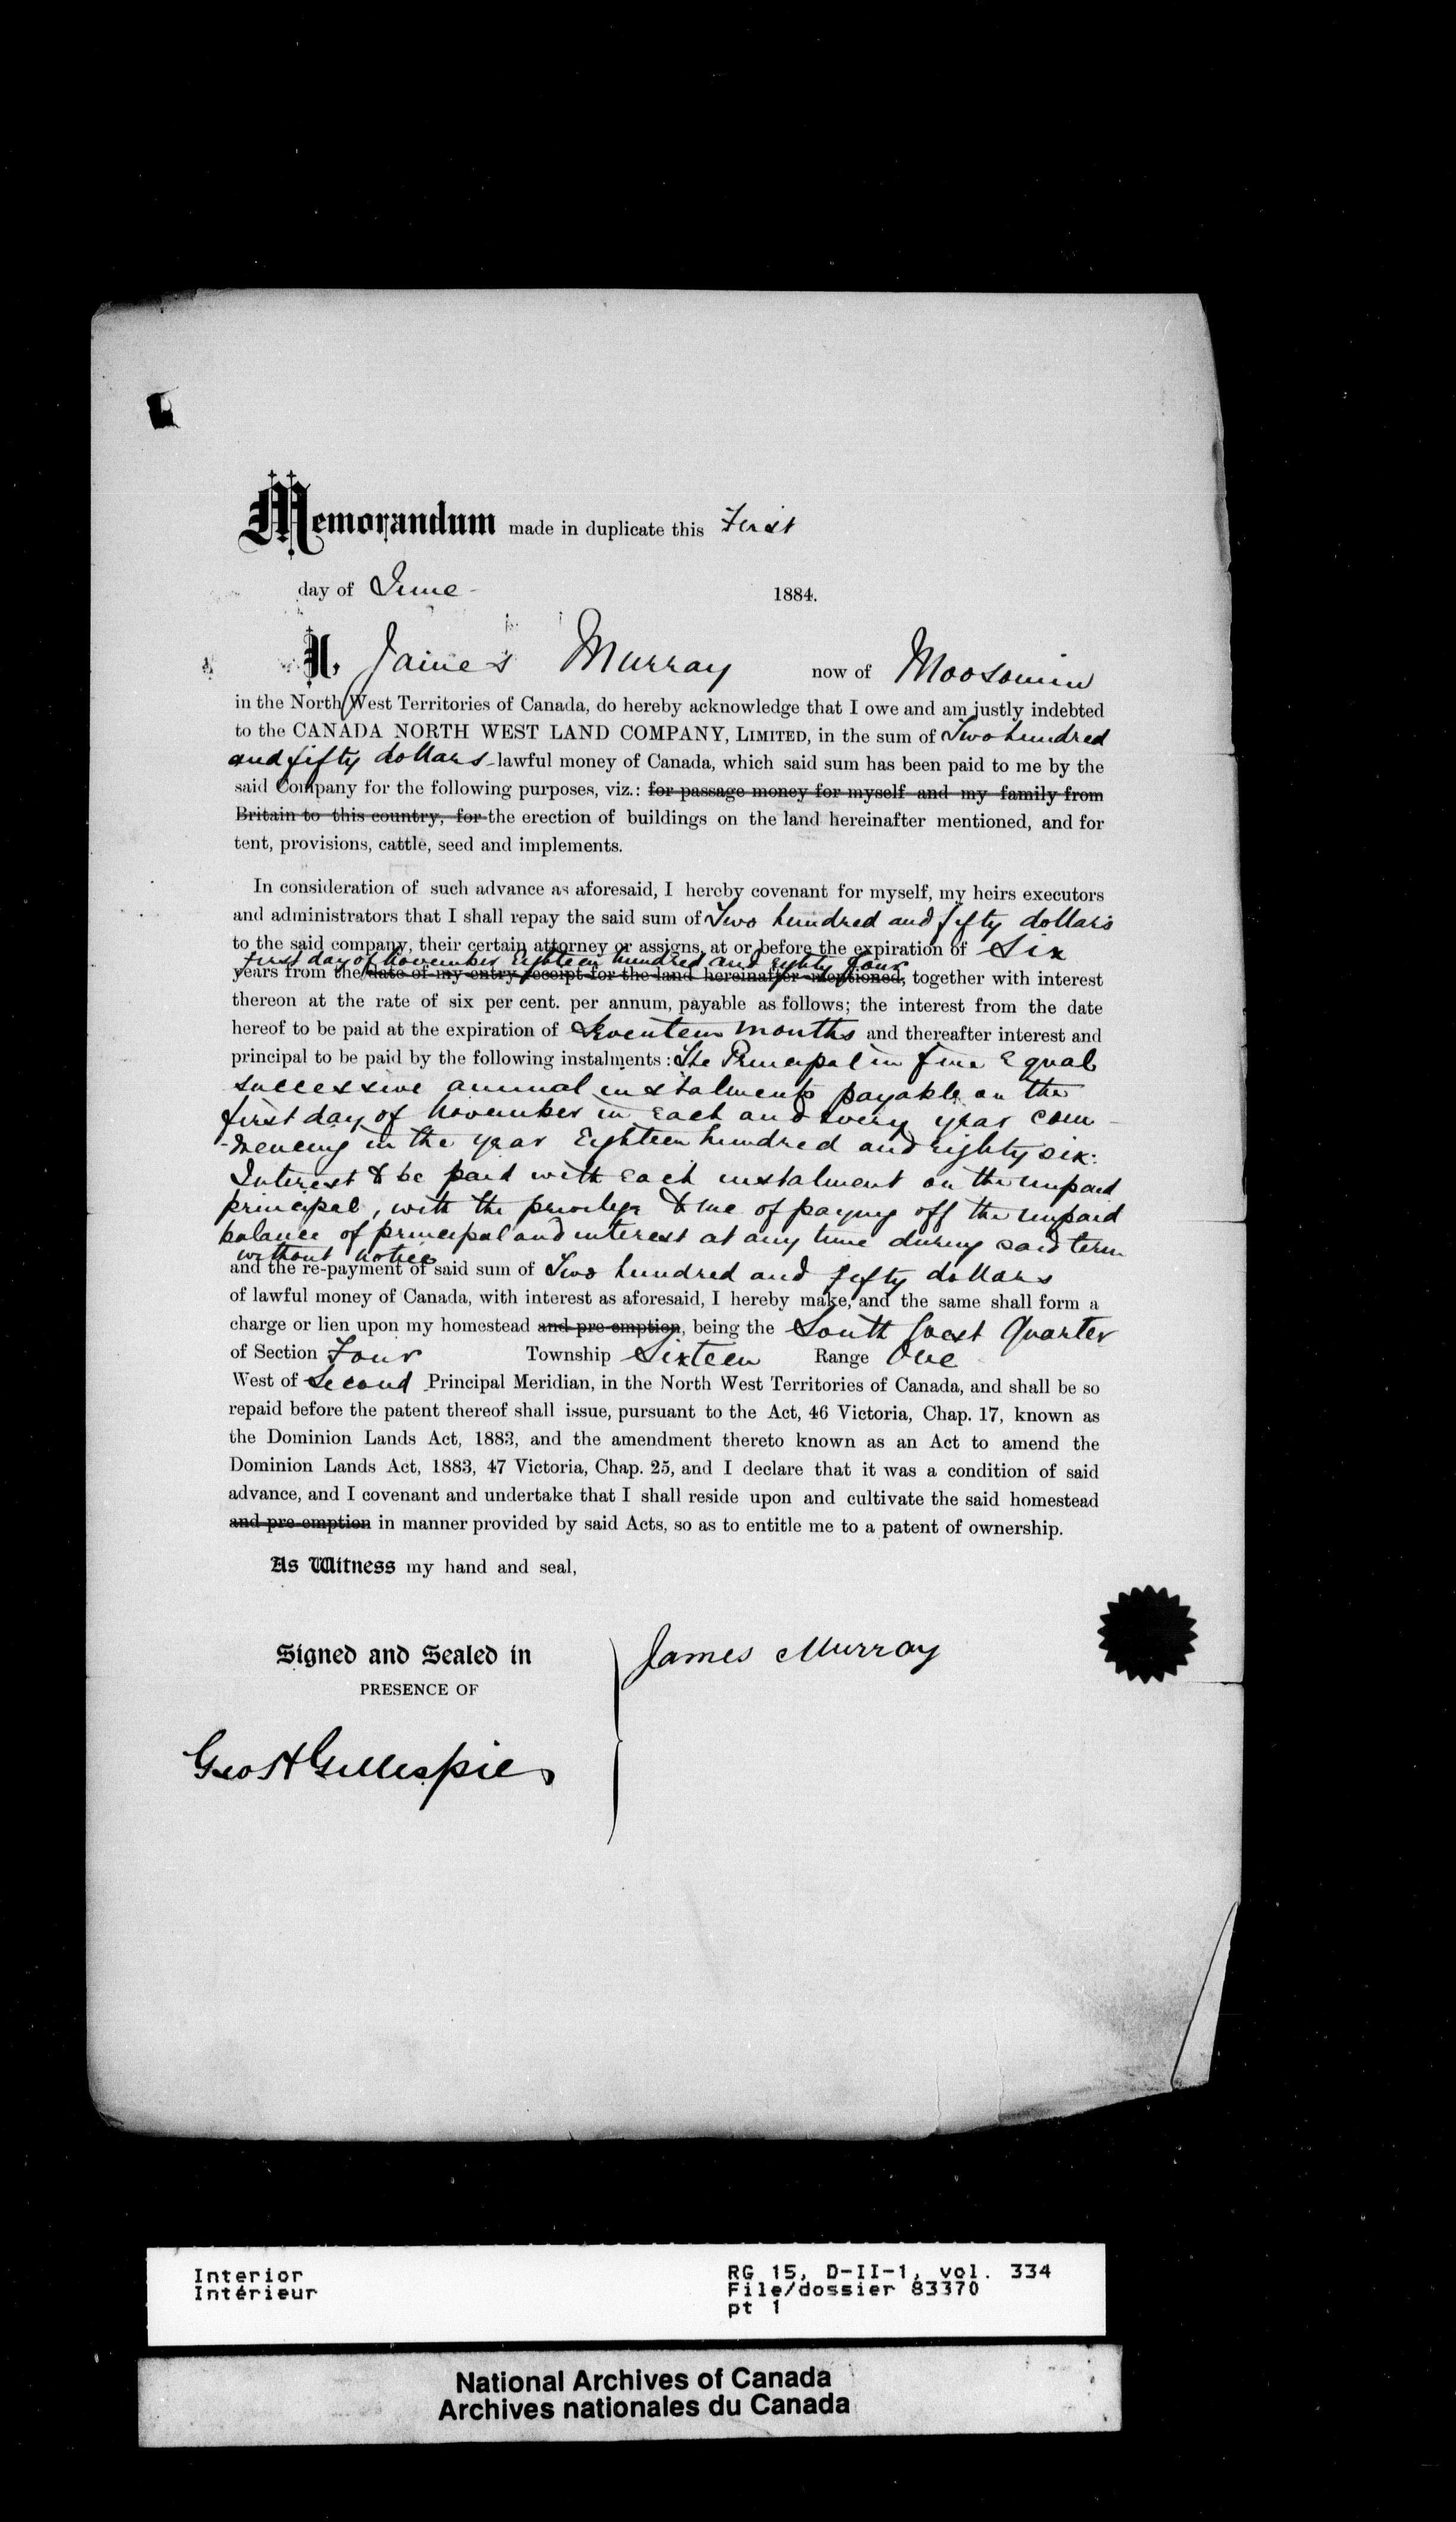 Memorandum made in duplicate this First
day of June 1884.
I, James Murray now of Moosomin
in the North West Territories of Canada, do hereby acknowledge that I owe and am justly indebted
to the CANADA NORTH WEST LAND COMPANY, LIMITED, in the sum of Two hundred
and fifty dollars lawful money of Canada, which said sum has been paid to me by the
said Company for the following purposes, viz.: for passage money for myself and my family from
Britain to this country, for the erection of buildings on the land hereinafter mentioned, and for
tent, provisions, cattle, seed and implements.
In consideration of such advance as aforesaid, I hereby covenant for myself, my heirs executors
and administrators that I shall repay the said sum of Two hundred and fifty dollars
to the said company, their certain attorney or assigns, at or before the expiration of Six
first day of November Eighteen hundred and eighty four
years from the date of my entry receipt for the land hereinafter mentioned, together with interest
thereon at the rate of six per cent. per annum, payable as follows; the interest from the date
hereof to be paid at the expiration of Seventeen months and thereafter interest and
principal to be paid by the following instalments: The Principal in five Equal
successive annual instalments payable on the
first day of November in Each and every year com-
-mencing in the year Eighteen hundred and eighty six:
Interest to be paid with Each instalment on the unpaid
principal, with the privilege to me of paying off the unpaid
balance of principal and interest at any time during said term
without notice
and the re-payment of said sum of Two hundred and fifty dollars
of lawful money of Canada, with interest as aforesaid, I hereby make, and the same shall form a
charge or lien upon my homestead and pre-emption, being the South West Quarter
of Section Four Township Sixteen Range One
West of Second Principal Meridian, in the North West Territories of Canada, and shall be so
repaid before the patent thereof shall issue, pursuant to the Act, 46 Victoria, Chap. 17, known as
the Dominion Lands Act, 1883, and the amendment thereto known as an Act to amend the
Dominion Lands Act, 1883, 47 Victoria, Chap. 25, and I declare that it was a condition of said
advance, and I covenant and undertake that I shall reside upon and cultivate the said homestead
and pre-emption in manner provided by said Acts, so as to entitle me to a patent of ownership.
As Witness my hand and seal,
Signed and Sealed in
PRESENCE OF
James Murray
Geo H Gillespie
Interior
Intérieur
RG 15, D-II-1, vol. 334
File/dossier 83370
pt 1
National Archives of Canada
Archives nationales du Canada